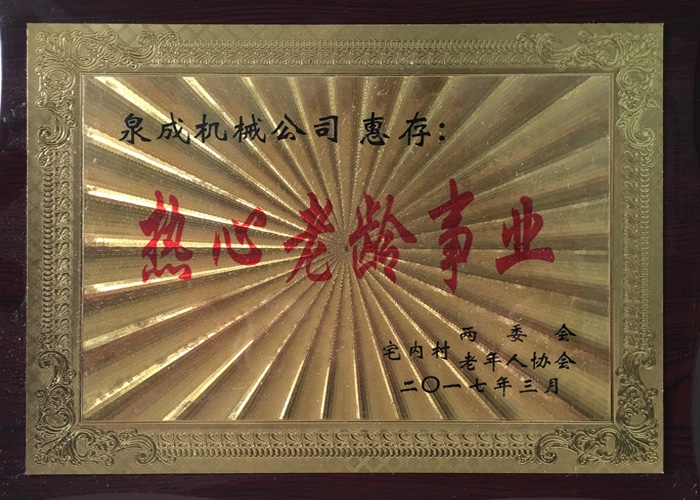 泉成机械公司 惠存:
热心老龄事业
两委会
宅内村
老年人协会
二〇一七年三月